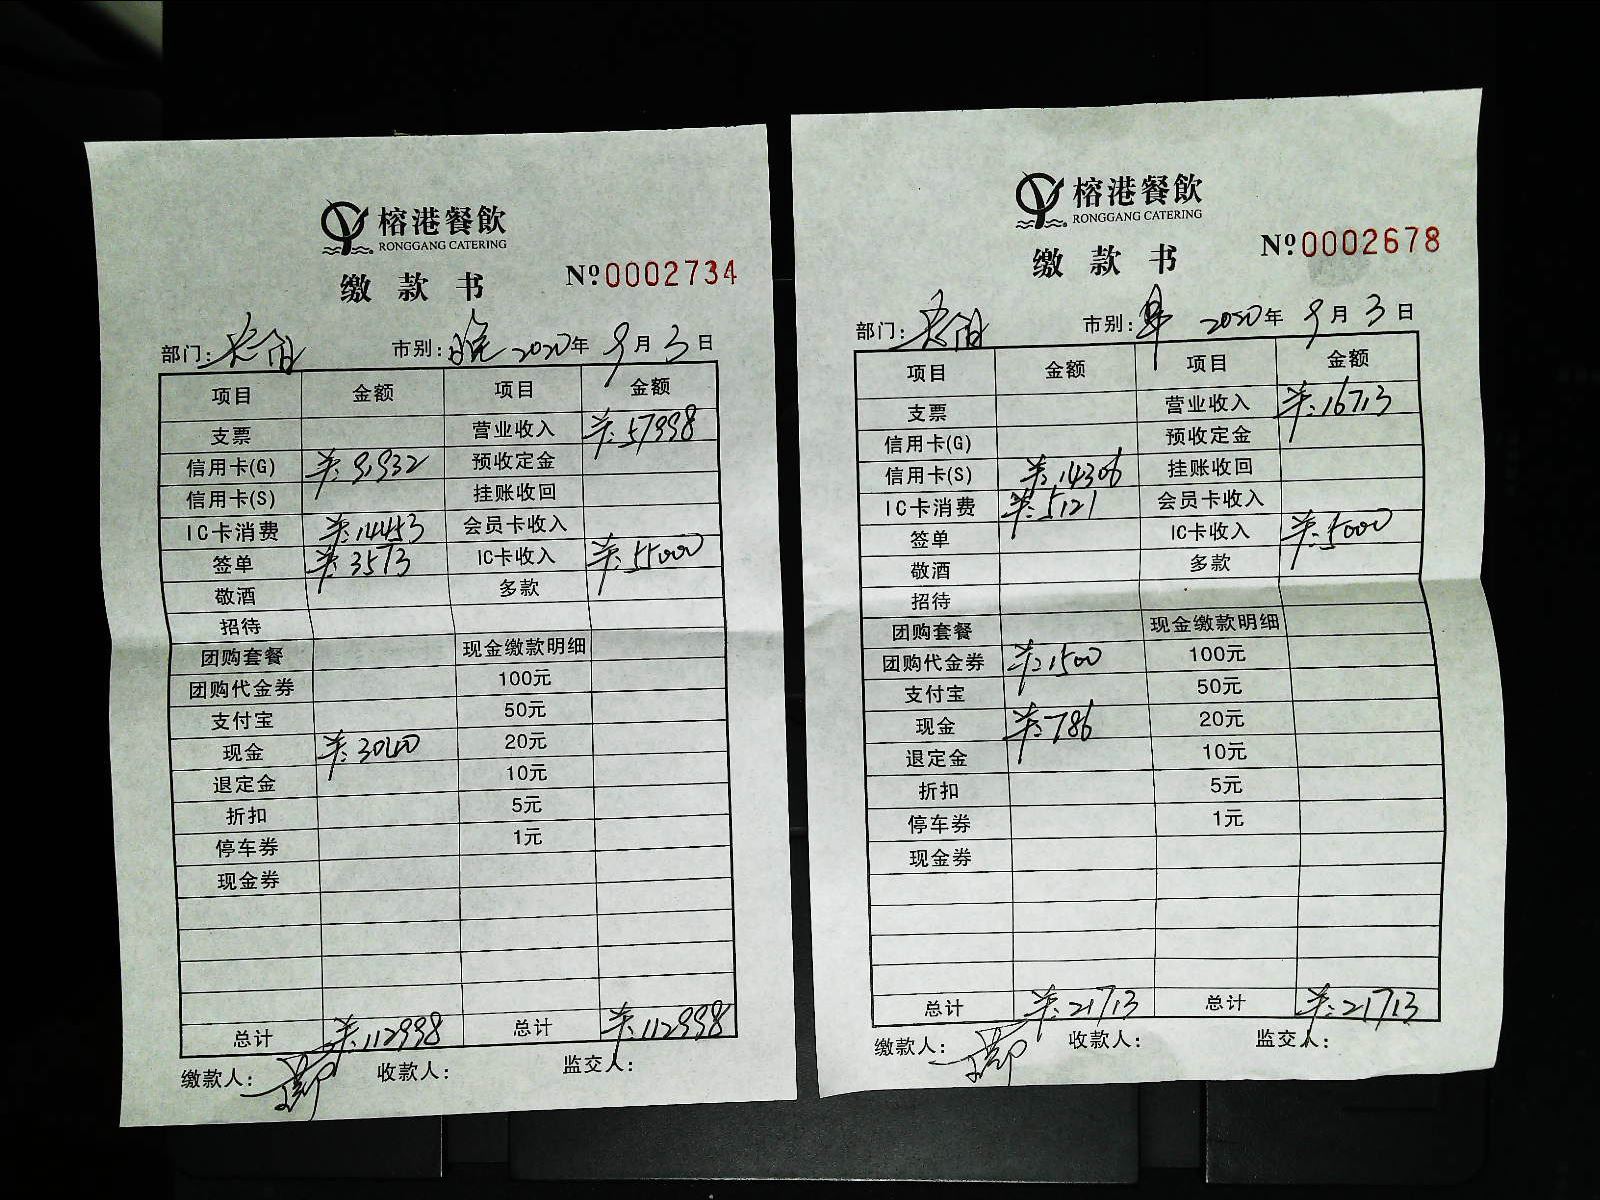 榕港餐飲
RONGGANG CATERING
缴款书 Nº0002734
部门: 市别: 晚 2020年 9月 3日
项目 金额 项目 金额
支票 营业收入 ¥:57998
信用卡(G) ¥:91932 预收定金
信用卡(S) 挂账收回
IC卡消费 ¥:14453 会员卡收入
签单 ¥:3573 IC卡收入 ¥:55000
敬酒 多款
招待
团购套餐 现金缴款明细
团购代金券 100元
支付宝 50元
现金 ¥:3040 20元
退定金 10元
折扣 5元
停车券 1元
现金券
总计 ¥:112998 总计 ¥:112998
缴款人: 收款人: 监交人:
榕港餐飲
RONGGANG CATERING
缴款书 Nº0002678
部门: 市别: 早 2020年 9月 3日
项目 金额 项目 金额
支票 营业收入 ¥:16713
信用卡(G) 预收定金
信用卡(S) ¥:14306 挂账收回
IC卡消费 ¥:5121 会员卡收入
签单 IC卡收入 ¥:5000
敬酒 多款
招待
团购套餐 现金缴款明细
团购代金券 ¥:1500 100元
支付宝 50元
现金 ¥:786 20元
退定金 10元
折扣 5元
停车券 1元
现金券
总计 ¥:21713 总计 ¥:21713
缴款人: 收款人: 监交人: